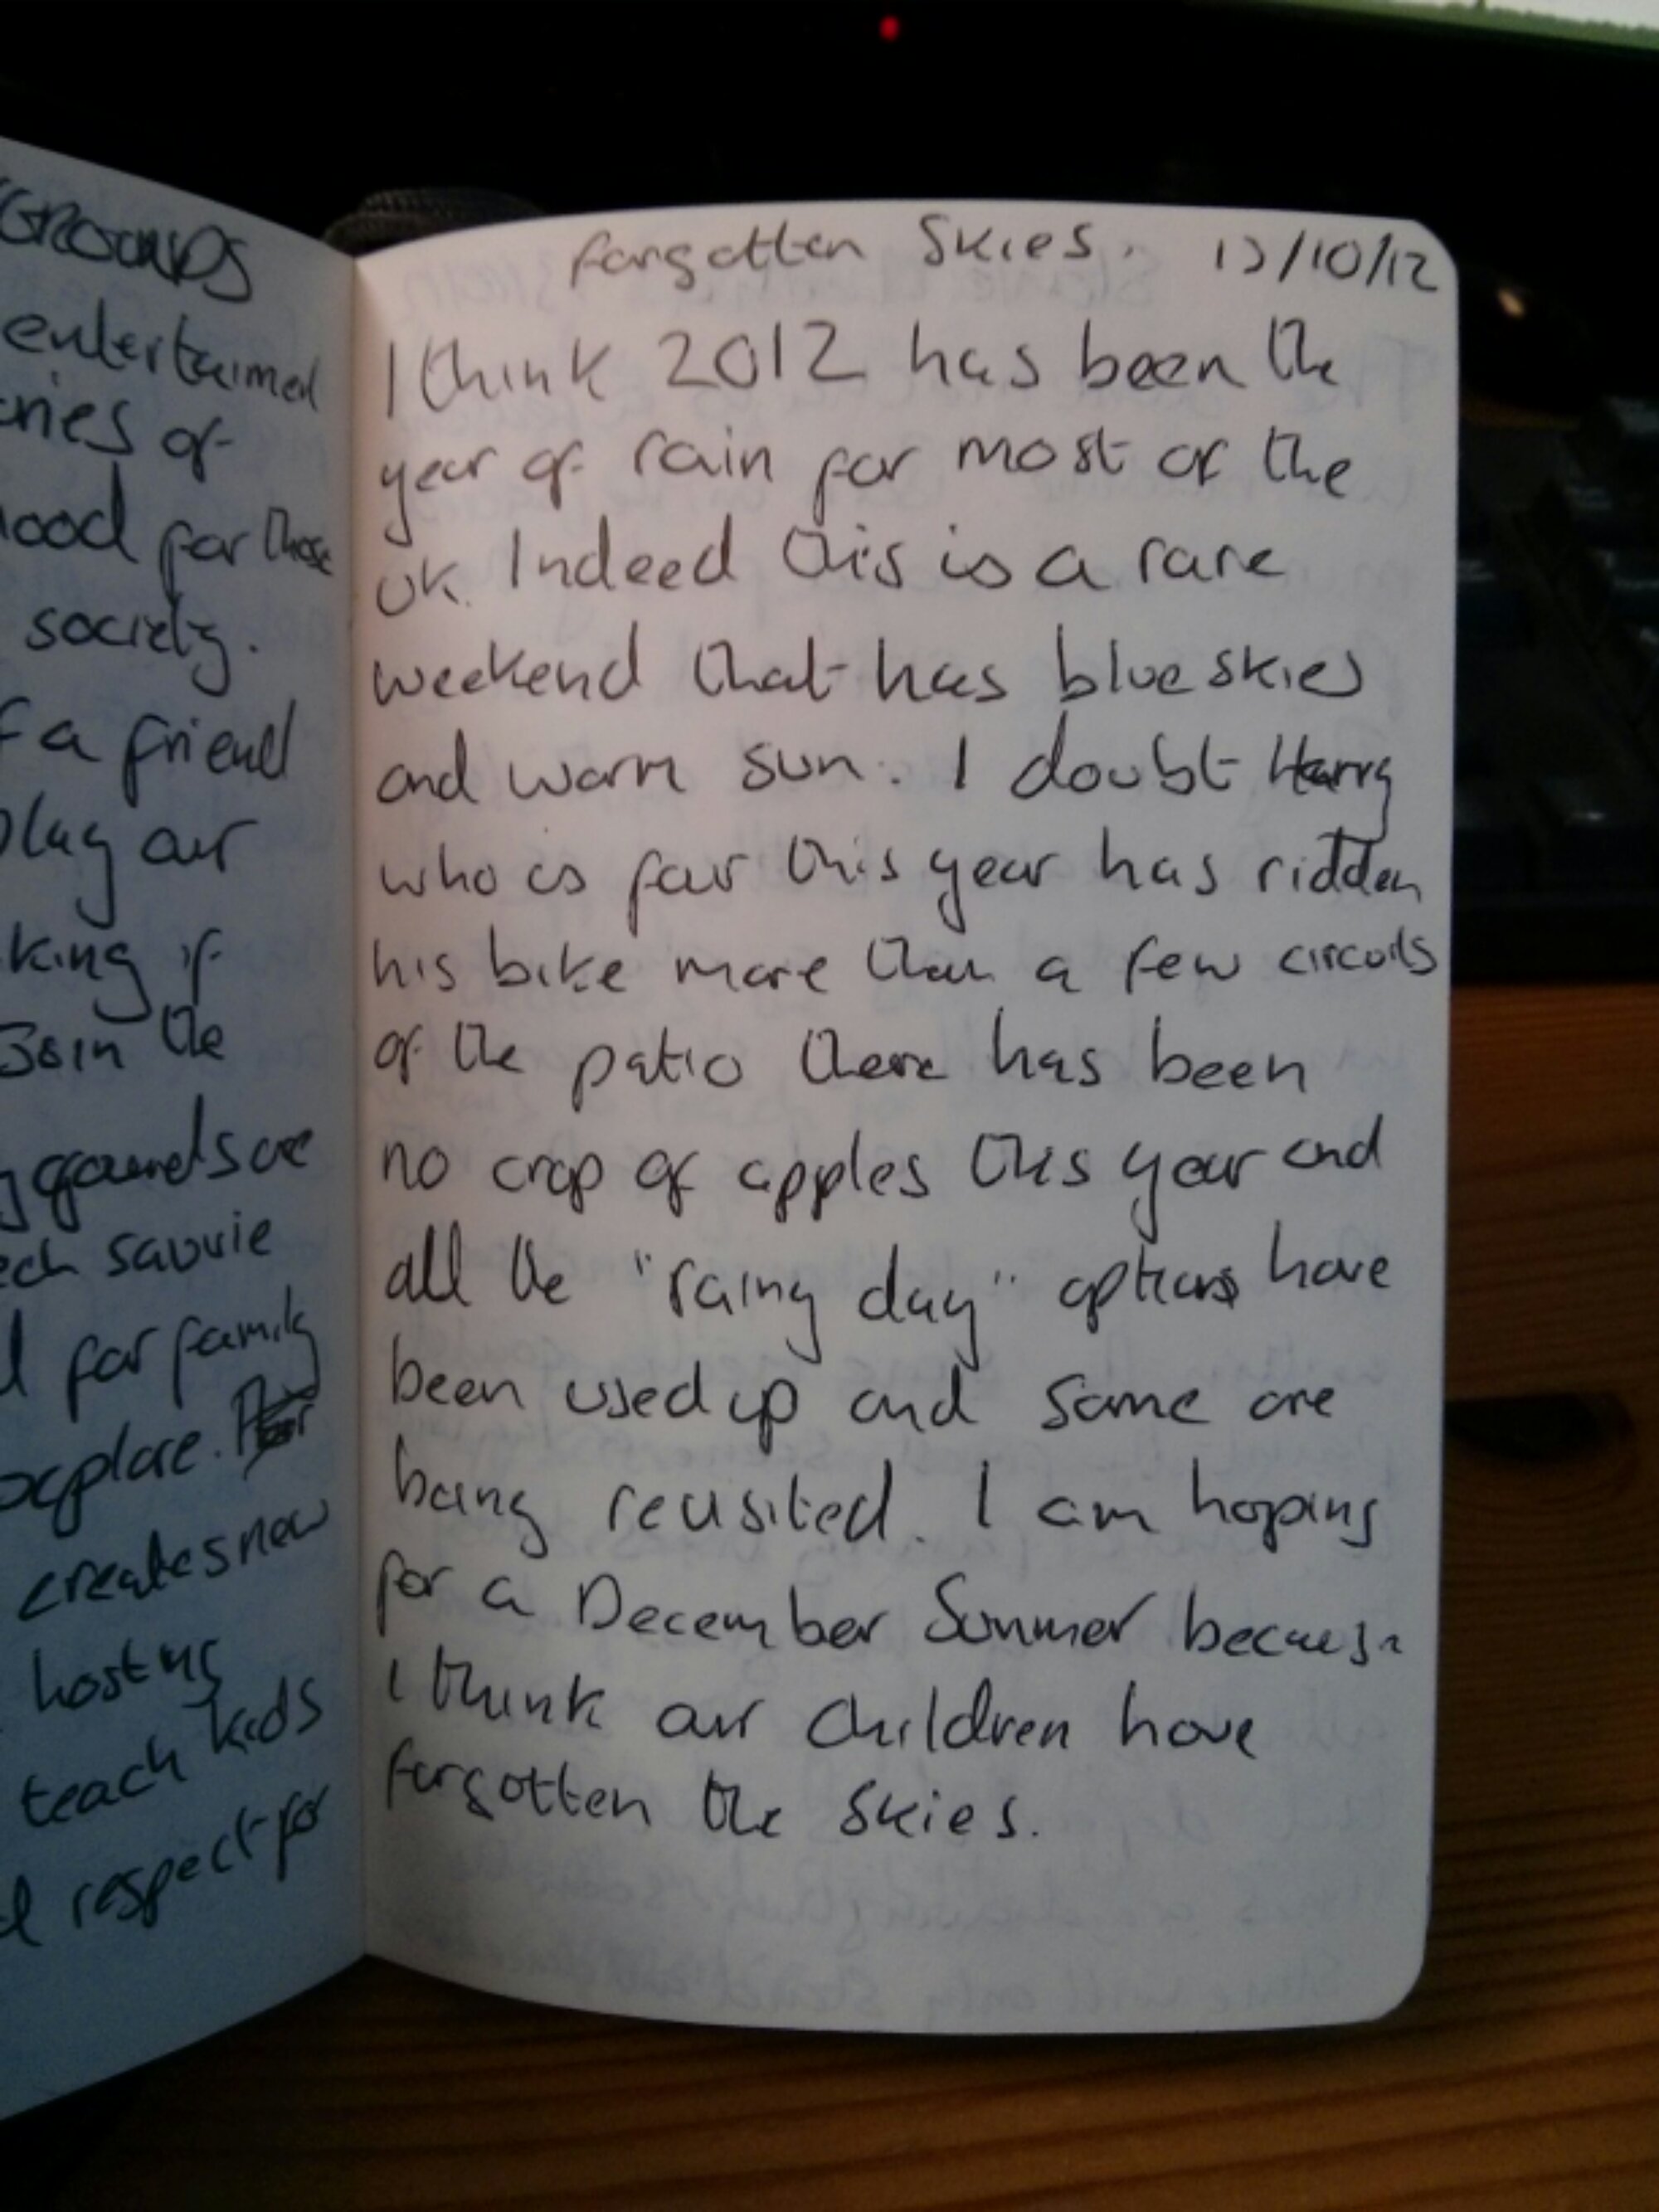 GROUNDS
entertained
of
for those
society.
a friend
play our
king if
Join the
grounds are
savvie
for family
explore.
creates new
hosting
teach kids
respect for
Forgotten Skies. 13/10/12
I think 2012 has been the
year of rain for most of the
UK. Indeed this is a rare
weekend that has blue skies
and warm sun. I doubt Harry
who is four this year has ridden
his bike more than a few circuits
of the patio there has been
no crop of apples this year and
all the "rainy day" options have
been used up and some are
being revisited. I am hoping
for a December Summer because
I think our children have
forgotten the skies.